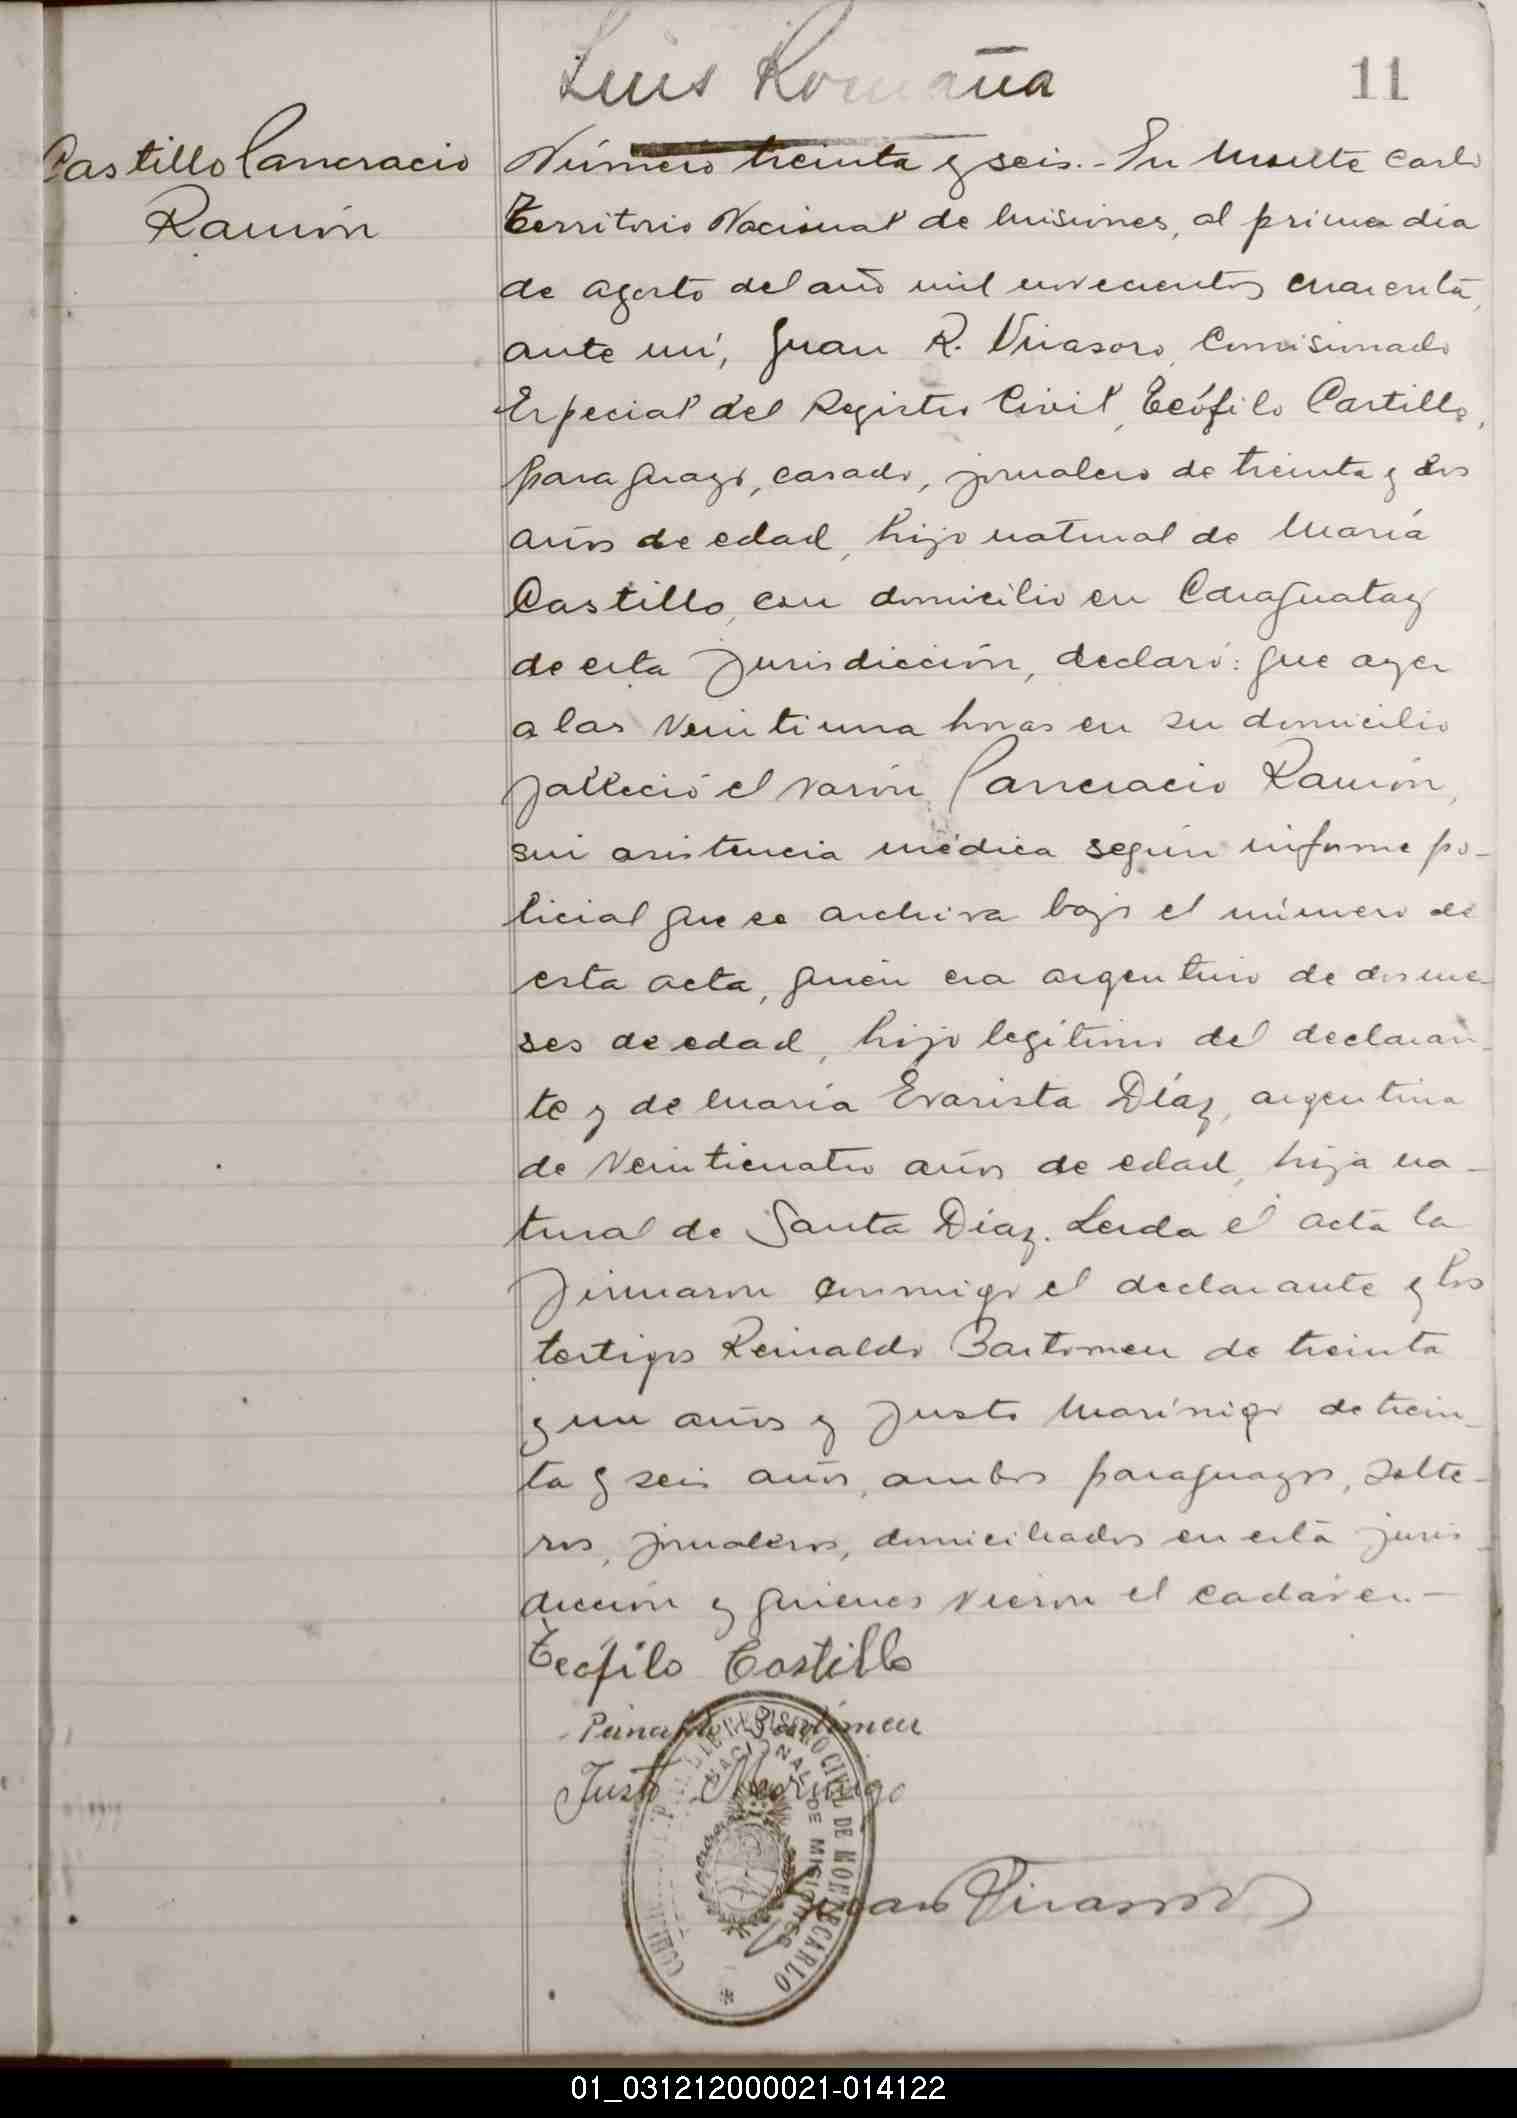 Luis Romaña
11
Castillo Pancracio
Ramón
Número treinta y seis.- En Monte Carlo
Territorio Nacional de Misiones, al primer dia
de agosto del año mil novecientos cuarenta,
ante mí, Juan R. Virasoro, Comisionado
Especial del Registro Civil, Teófilo Castillo,
paraguayo, casado, jornalero de treinta y dos
años de edad, hijo natural de María
Castillo, con domicilio en Caraguatay
de esta jurisdicción, declaró: que ayer
a las veintiuna horas en su domicilio
falleció el varón Pancracio Ramón,
sin asistencia médica según informe po-
licial que se archiva bajo el número de
esta acta, quién era argentino de dos me-
ses de edad, hijo legítimo del declaran-
te y de María Evarista Díaz, argentina
de veinticuatro años de edad, hija na-
tural de Santa Díaz. Leida el acta la
firmaron conmigo el declarante y los
testigos Reinaldo Bartomeu de treinta
y un años y Justo Marínigo de trein-
ta y seis años, ambos paraguayos, solte-
ros, jornaleros, domiciliados en esta juris-
dicción y quienes vieron el cadáver.-
Teófilo Castillo
Reinaldo Bartomeu
Justo Marinigo
Juan Virasoro
REGISTRO CIVIL DE MONTECARLO
NACIONAL DE MISIONES
01_031212000021-014122